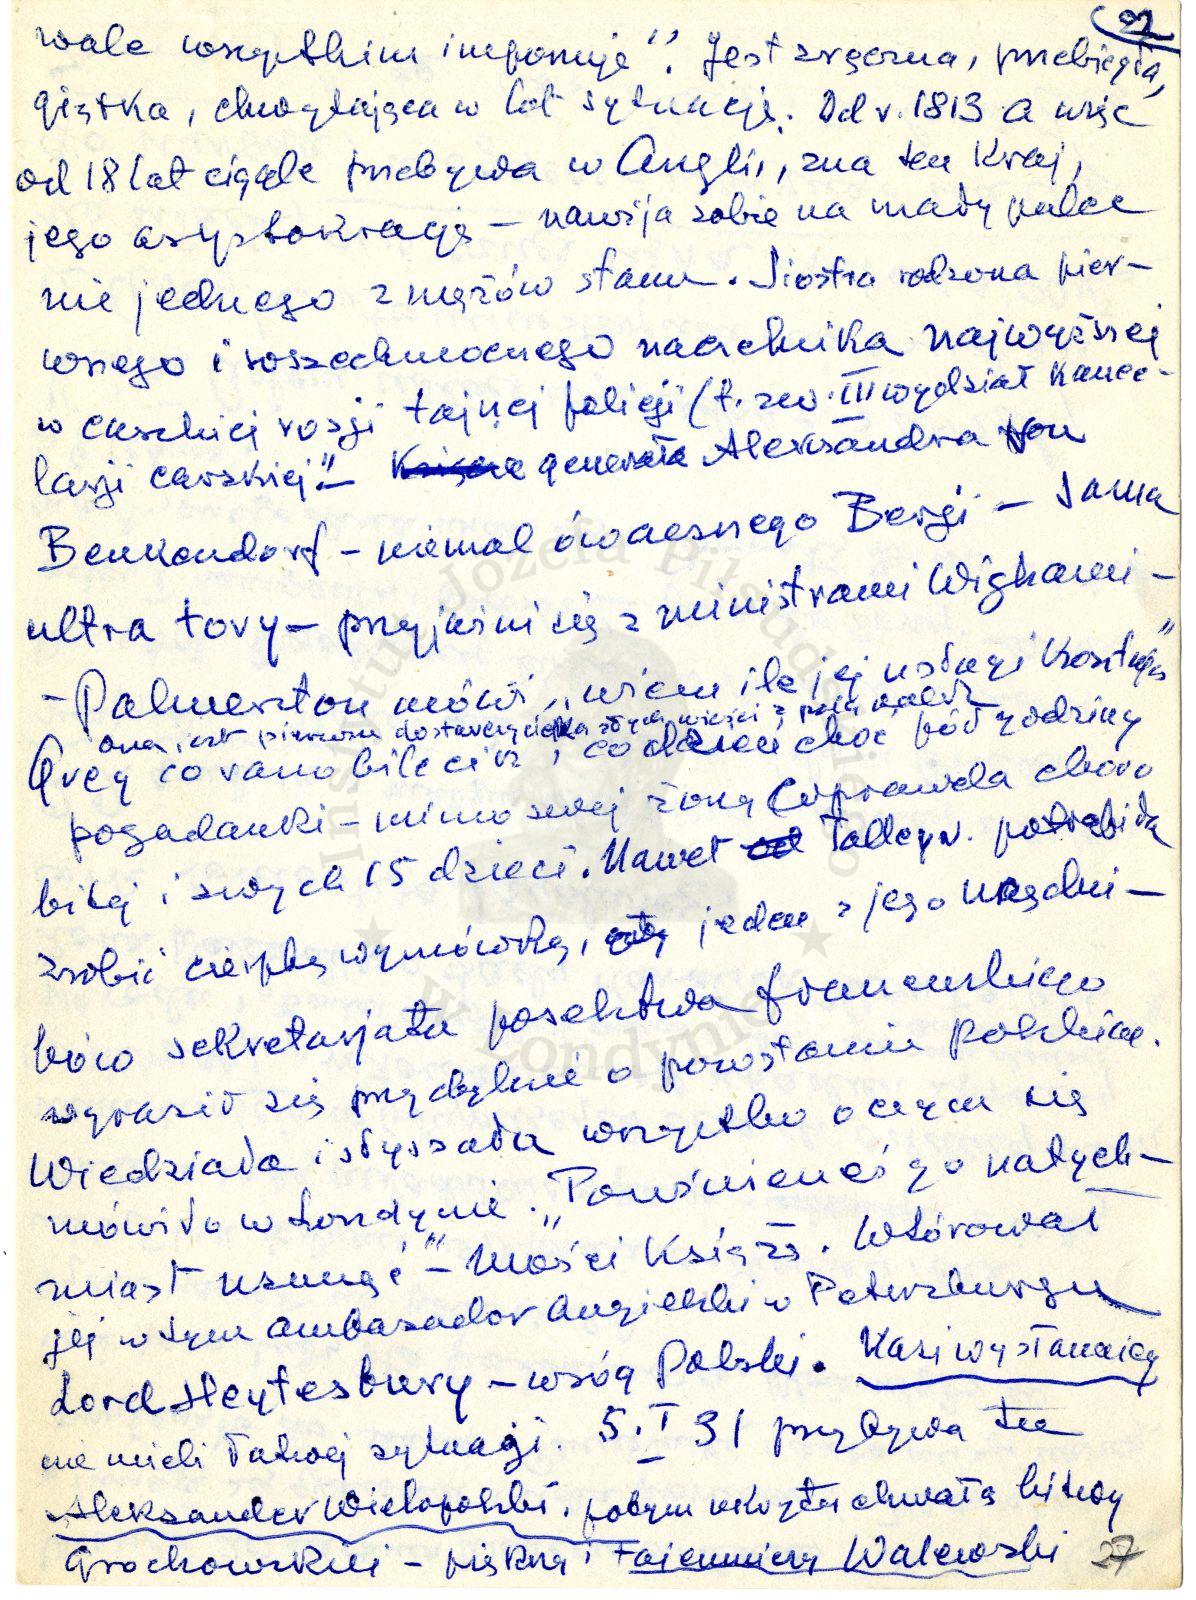 27
wale wszystkim imponuje". Jest zręczna, przebiegła,
giętka, chwytająca w lot sytuację. Od r. 1813 a więc
od 18 lat ciągle przebywa w Anglii, zna ten kraj,
jego arystokrację – nawija sobie na mały palec
nie jednego z mężów stanu. Siostra rodzona pier-
wszego i wszechmocnego naczelnika najwyższej
w carskiej rosji tajnej policji (t. zw. III wydział kance-
larji carskiej" – generała Aleksandra von
Benkendorf – niemal ówczesnego Bergi – sama
ultra tory – przyjaźni się z ministrami Wighami –
– Palmerston mówi „wiem ile jej usługi kosztują"
ona jest pierwsza dostarczycielka złych wieści z pola walki
Grey co rano bilecik, codzień choć pół godziny
pogadanki – mimo swej żony (wprawda choro
bitej i swych 15 dzieci. Nawet Talleyr. potrafiła
zrobić cierpką wymówkę, jeden z jego urzędni-
ków sekretarjatu poselstwa francuskiego
wyraził się przychylnie o powstaniu polskim.
Wiedziała i słyszała wszystko o czym się
mówiło w Londynie. „Powinieneś go natych-
miast usunąć" – Mości Książe. Wtórował
jej w tym ambasador angielski w Petersburgu
Lord Heytesbury – wróg Polski. Nasi wysłannicy
nie mieli łatwej sytuacji. 5. I 31 przybywa tu
Aleksander Wielopolski, potym okryty chwałą bitwy
Grochowskiej – piękny i tajemniczy Walewski
27
Instytut Józefa Piłsudskiego
w Londynie